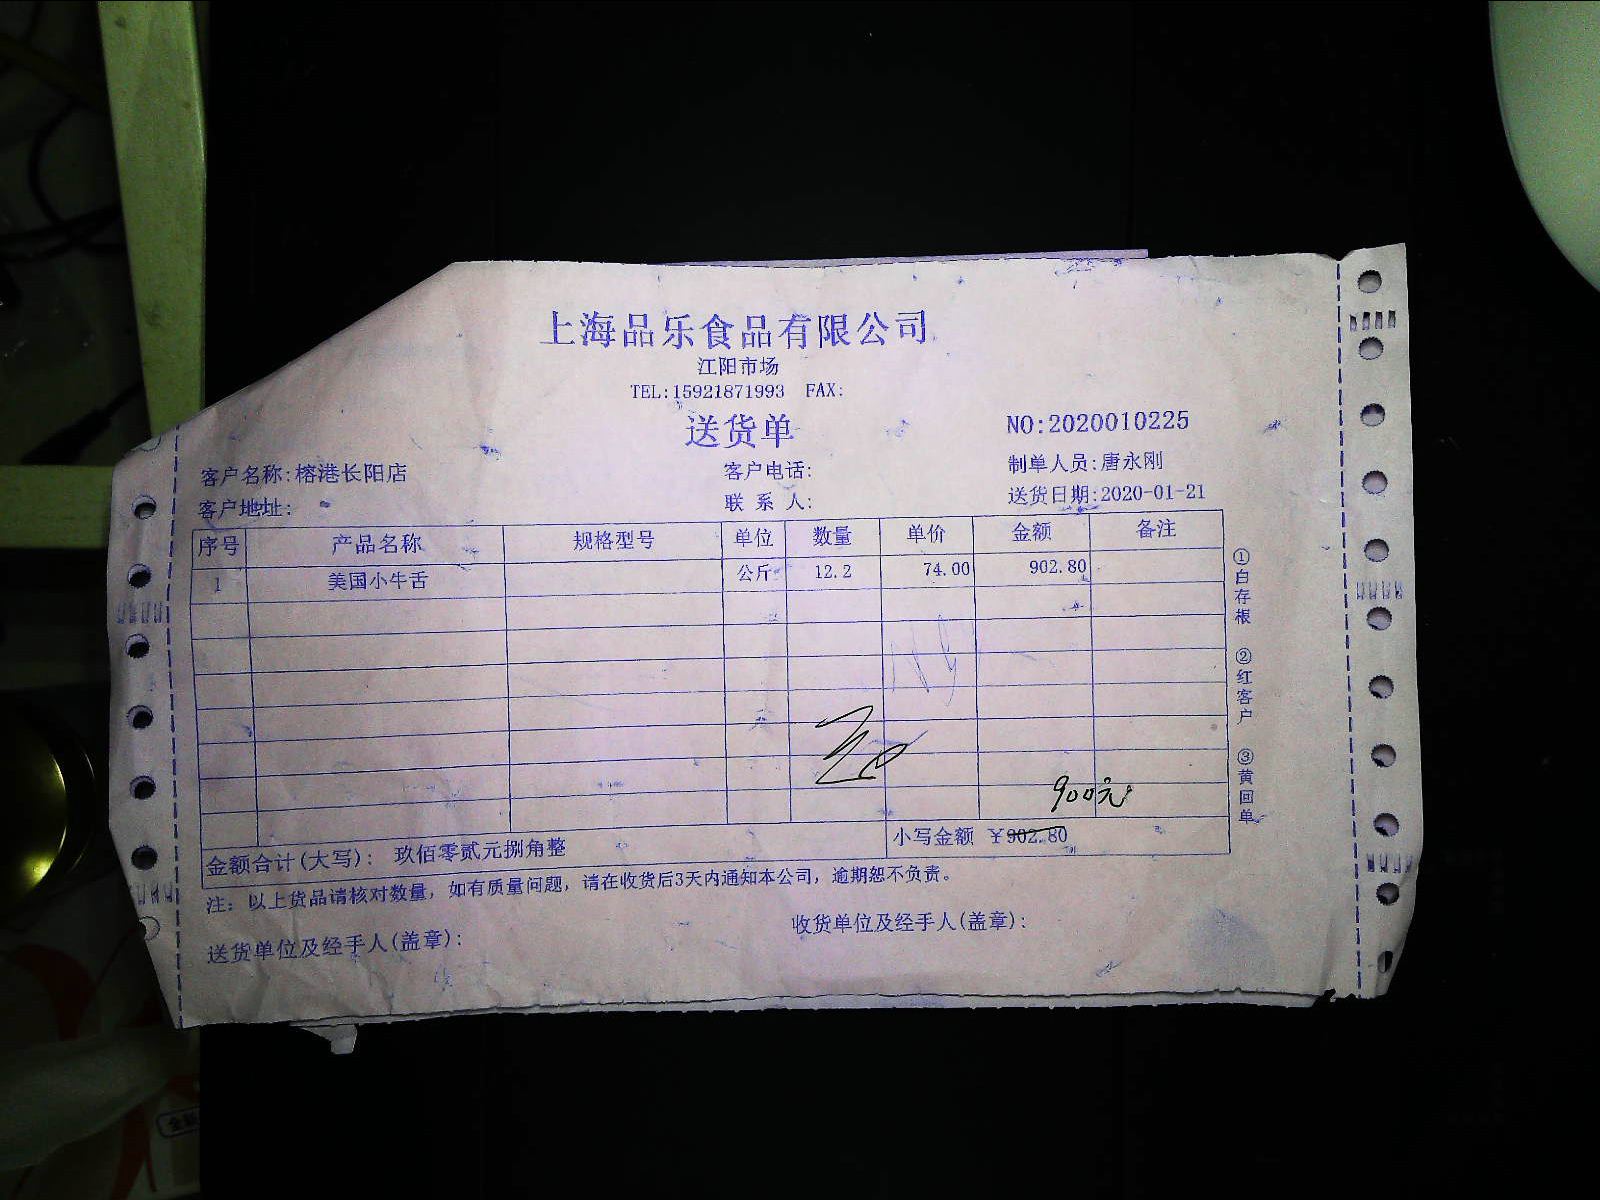 上海品乐食品有限公司
江阳市场
TEL:15921871993 FAX:
送货单
NO:2020010225
客户名称:榕港长阳店 客户电话: 制单人员:唐永刚
客户地址: 联系人: 送货日期:2020-01-21
序号 产品名称 规格型号 单位 数量 单价 金额 备注
1 美国小牛舌 公斤 12.2 74.00 902.80
900元
金额合计(大写): 玖佰零贰元捌角整 小写金额 ¥902.80
注: 以上货品请核对数量, 如有质量问题, 请在收货后3天内通知本公司, 逾期恕不负责。
送货单位及经手人(盖章): 收货单位及经手人(盖章):
①白存根 ②红客户 ③黄回单